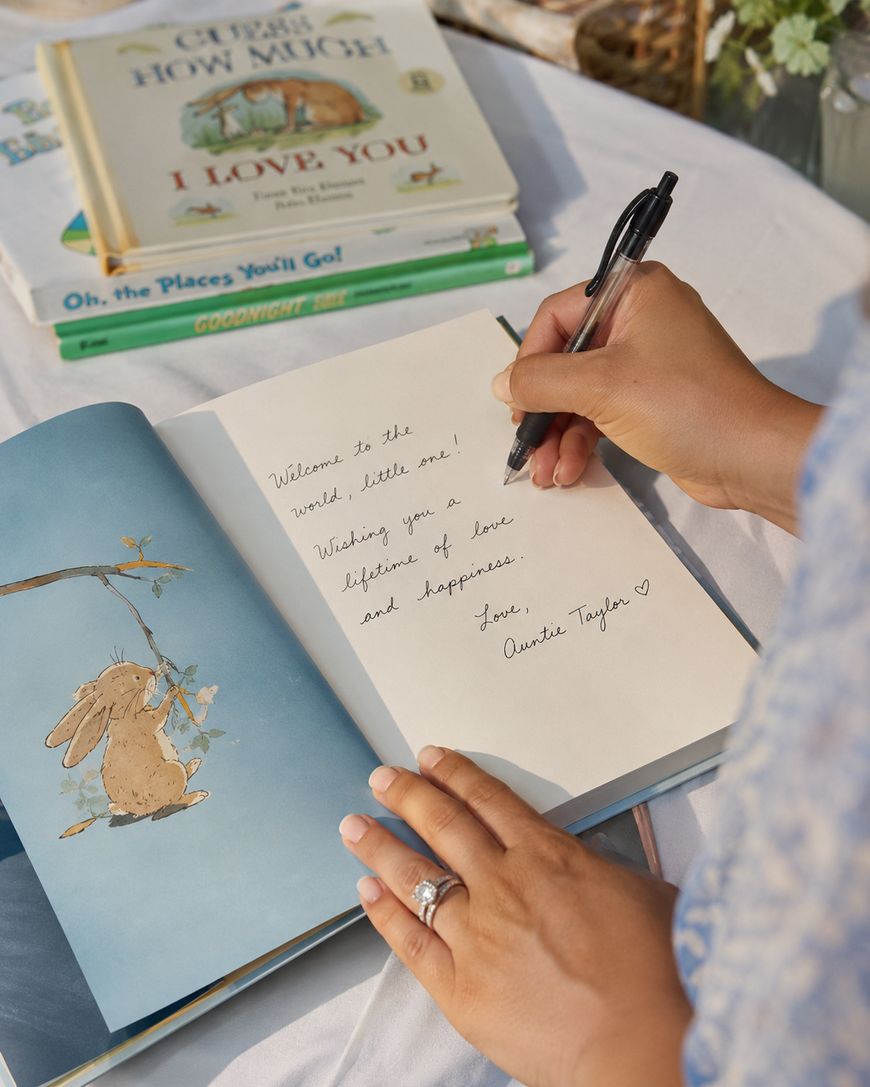 GUESS
HOW MUCH
I LOVE YOU
Oh, the Places You'll Go!
GOODNIGHT
Welcome to the
world, little one!
Wishing you a
lifetime of love
and happiness.
Love,
Auntie Taylor ♡